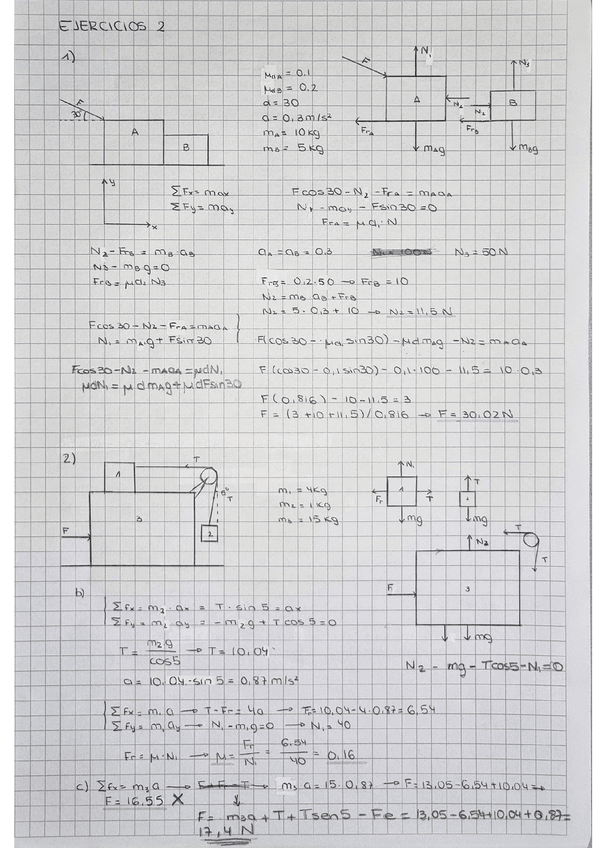 EJERCICIOS 2
1)
F
30°
A
B
μdA = 0.1
μdB = 0.2
α = 30
a = 0,3m/s²
mA = 10kg
mB = 5kg
F
N₁
A
FrA
mAg
N₂
N₂
N₃
B
FrB
mBg
y
x
ΣFx = max
ΣFy = may
Fcos30 - N₂ - FrA = mAaA
N₁ - mAg - Fsin30 = 0
FrA = μd₁ · N
N₂ - FrB = mB aB
N3 - mB g = 0
FrB = μd₂ N₃
aA = aB = 0.3
N₃ = 50N
FrB = 0,2·50 → FrB = 10
N₂ = mB aB + FrB
N₂ = 5 · 0,3 + 10 → N₂ = 11,5 N
Fcos30 - N₂ - FrA = mAaA
N₁ = mAg + Fsin30
F(cos30 - μd₁ sin30) - μdmAg - N2 = mAaA
Fcos30 - N₂ - mAaA = μdN₁
μdN₁ = μdmAg + μdFsin30
F (cos30 - 0,1sin30) - 0,1·100 - 11,5 = 10·0,3
F(0,816) - 10 - 11.5 = 3
F = (3+10+11,5)/0,816 → F = 30.02N
2)
1
T
T
2
3
F
m₁ = 4kg
m₂ = 1kg
m₃ = 15kg
N₁
Fr
1
T
mg
T
mg
N₂
T
T
F
3
mg
N₂ - mg - Tcos5 - N₁ = 0
b)
ΣFx = m₂·ax = T·sin5 = ax
ΣFy = m₂·ay = -m₂g + Tcos5 = 0
T = m₂g / cos5 → T = 10,04
a = 10,04·sin5 = 0,87 m/s²
ΣFx = m₁a → T - Fr = 4a → Fr = 10,04 - 4·0,87 = 6,54
ΣFy = m₁ay → N₁ - m₁g = 0 → N₁ = 40
Fr = μ·N₁ → μ = Fr / N₁ = 6.54 / 40 = 0,16
c) ΣFx = m₃a → F + Fr - T → m₃a = 15·0,87 → F = 13,05 - 6,54 + 10,04 →
F = 16,55 X
F = m₃a + T + Tsen5 - Fe = 13,05 - 6,54 + 10,04 + 0,87 =
17,4 N